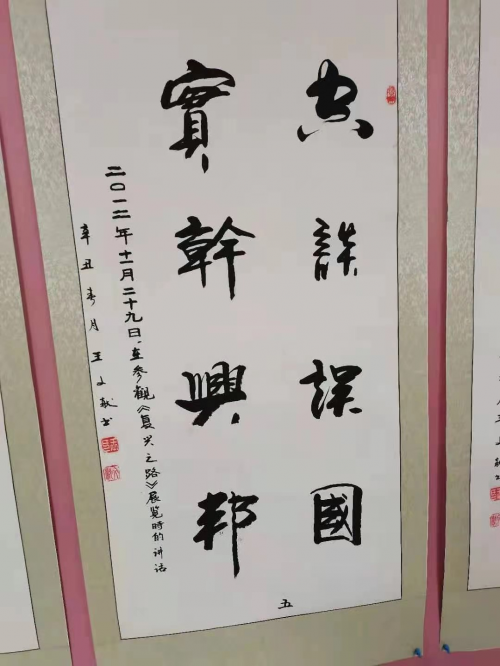 空談誤國
實幹興邦
二〇一二年十一月二十九日，在參觀《复兴之路》展览時的讲话
辛丑春月王文
书
五